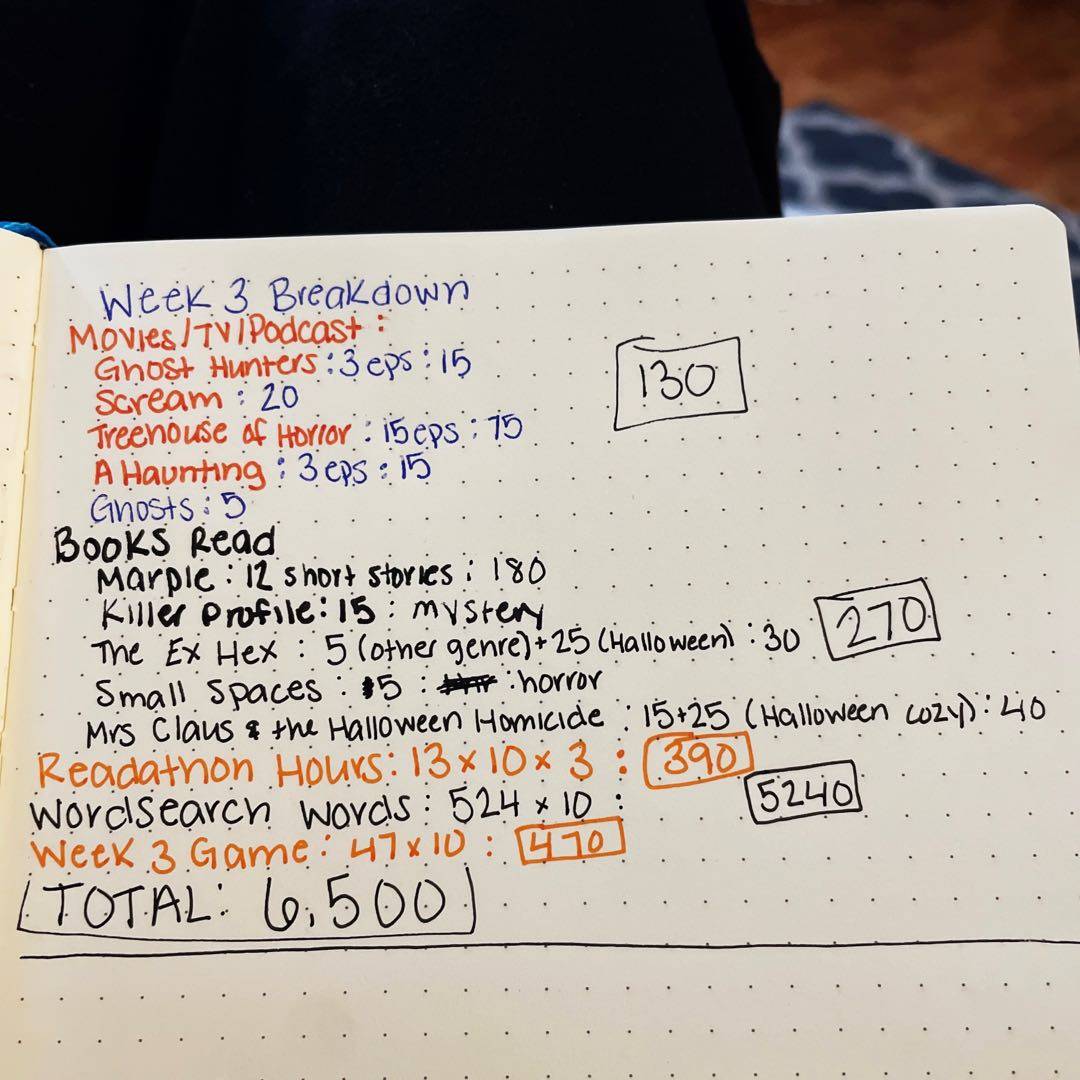 Week 3 Breakdown
Movies/TV/Podcast:
Ghost Hunters: 3 eps: 15
130
Scream: 20
Treehouse of Horror: 15 eps: 75
A Haunting: 3 eps: 15
Ghosts: 5
Books Read
Marple: 12 short stories: 180
Killer Profile: 15: mystery
The Ex Hex: 5 (other genre) + 25 (Halloween): 30
270
Small Spaces: 5: : horror
Mrs Claus & the Halloween Homicide: 15+25 (Halloween cozy): 40
Readathon Hours: 13 x 10 x 3: 390
Wordsearch Words: 524 x 10: 5240
Week 3 Game: 47 x 10: 470
TOTAL: 6,500